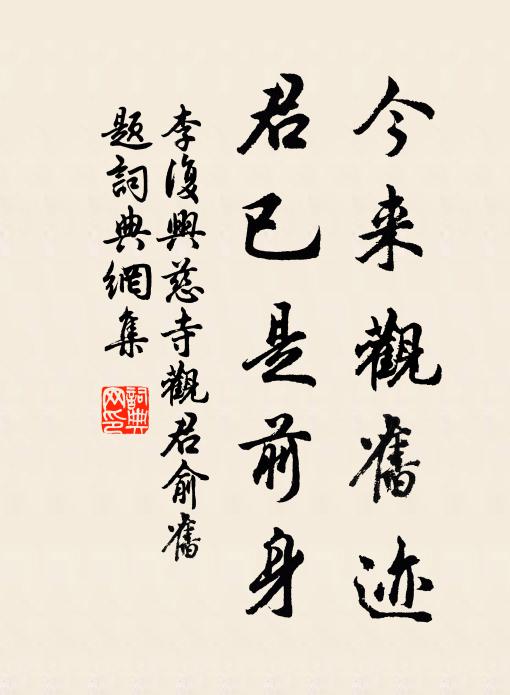 今来觀舊迹
君已是前身
李復興慈寺觀君俞舊
題詞典網集
詞典网印